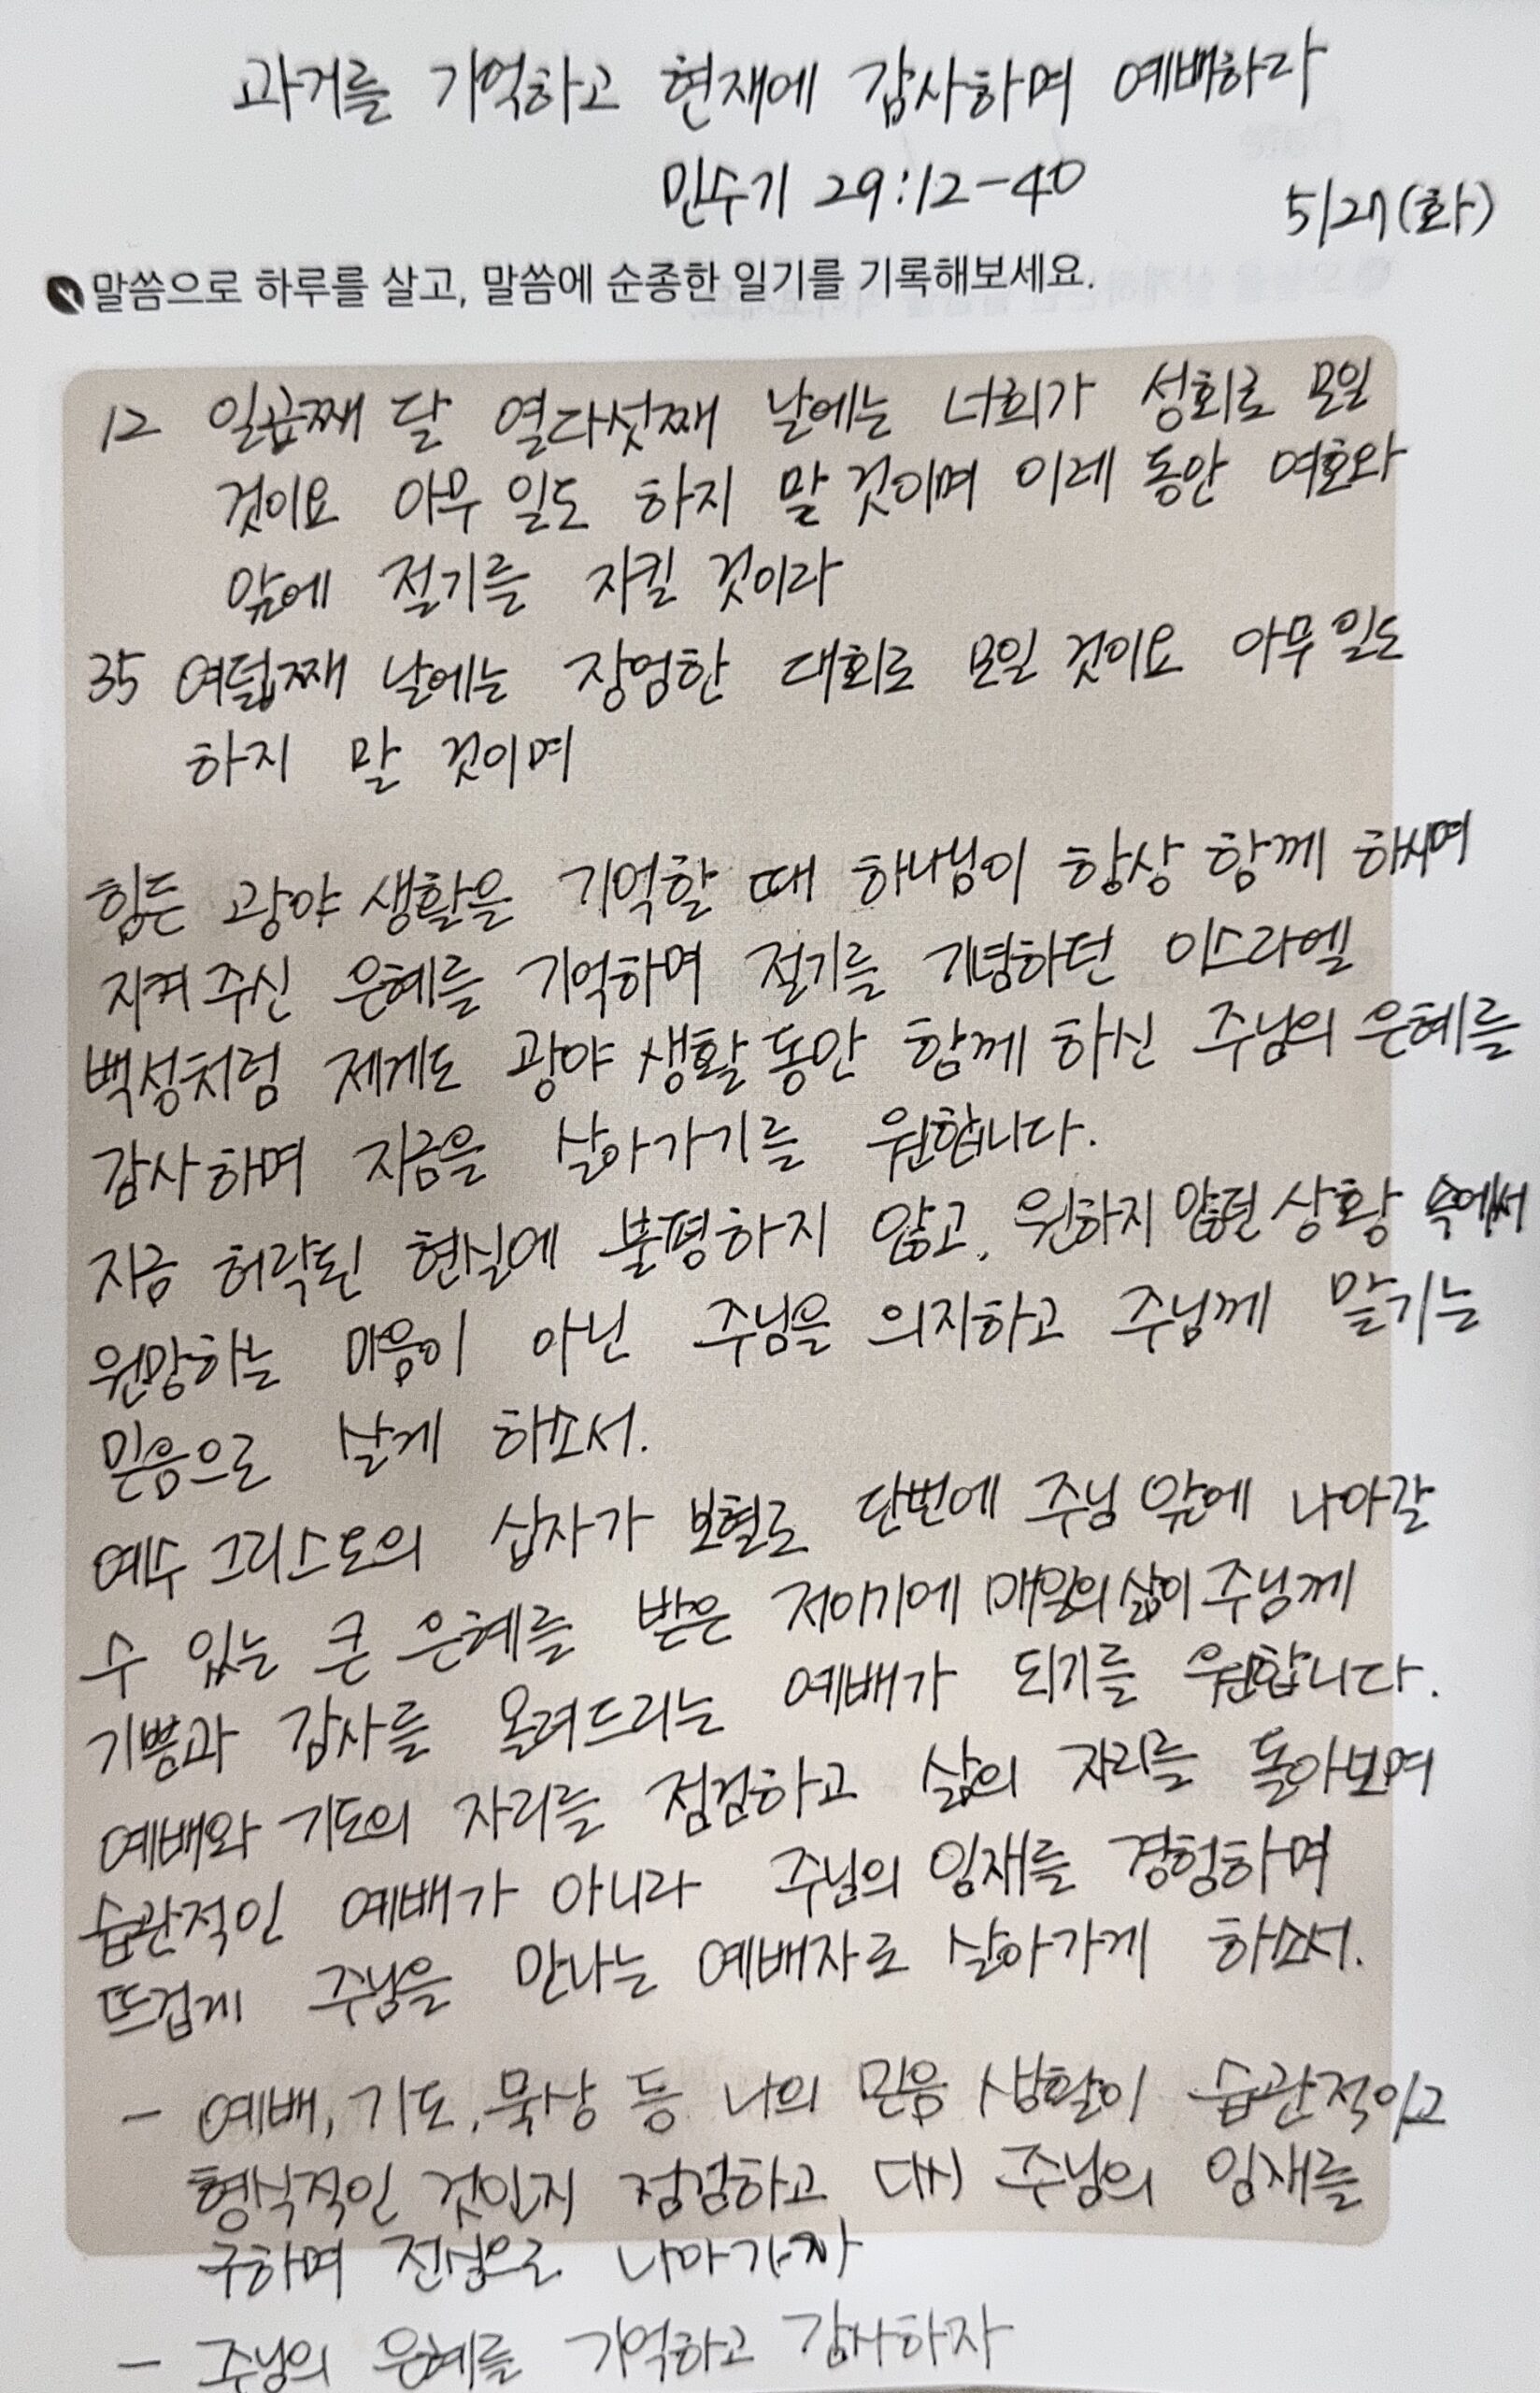 과거를 기억하고 현재에 감사하며 예배하라
민수기 29:12-40
5/27(화)
말씀으로 하루를 살고, 말씀에 순종한 일기를 기록해보세요.
12 일곱째 달 열다섯째 날에는 너희가 성회로 모일
것이요 아무 일도 하지 말 것이며 이레 동안 여호와
앞에 절기를 지킬 것이라
35 여덟째 날에는 장엄한 대회로 모일 것이요 아무 일도
하지 말 것이며
힘든 광야 생활을 기억할 때 하나님이 항상 함께 하시며
지켜 주신 은혜를 기억하며 절기를 기념하던 이스라엘
백성처럼 제게도 광야 생활 동안 함께 하신 주님의 은혜를
감사하며 지금을 살아가기를 원합니다.
지금 허락된 현실에 불평하지 않고, 원하지 않던 상황 속에서
원망하는 마음이 아닌 주님을 의지하고 주님께 맡기는
믿음으로 살게 하소서.
예수 그리스도의 십자가 보혈로 단번에 주님 앞에 나아갈
수 있는 큰 은혜를 받은 저이기에 매일의 삶이 주님께
기쁨과 감사를 올려드리는 예배가 되기를 원합니다.
예배와 기도의 자리를 점검하고 삶의 자리를 돌아보며
습관적인 예배가 아니라 주님의 임재를 경험하며
뜨겁게 주님을 만나는 예배자로 살아가게 하소서.
- 예배, 기도, 묵상 등 나의 믿음 생활이 습관적이고
형식적인 것인지 점검하고 다시 주님의 임재를
구하며 진심으로 나아가자
- 주님의 은혜를 기억하고 감사하자